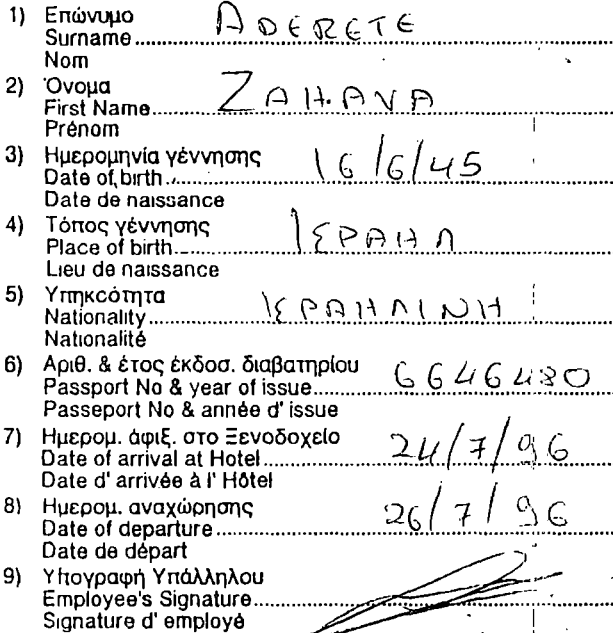 1) Επώνυμο
Surname ADERETE
Nom
2) Όνομα
First Name ZAHAVA
Prénom
3) Ημερομηνία γέννησης
Date of birth 16/6/45
Date de naissance
4) Τόπος γέννησης
Place of birth ΙΣΡΑΗΛ
Lieu de naissance
5) Υπηκοότητα
Nationality ΙΣΡΑΗΛΙΝΗ
Nationalité
6) Αριθ. & έτος έκδοσ. διαβατηρίου
Passport No & year of issue 6646480
Passeport No & année d' issue
7) Ημερομ. άφιξ. στο Ξενοδοχείο
Date of arrival at Hotel 24/7/96
Date d' arrivée à l' Hôtel
8) Ημερομ. αναχώρησης
Date of departure 26/7/96
Date de départ
9) Υπογραφή Υπάλληλου
Employee's Signature
Signature d' employé